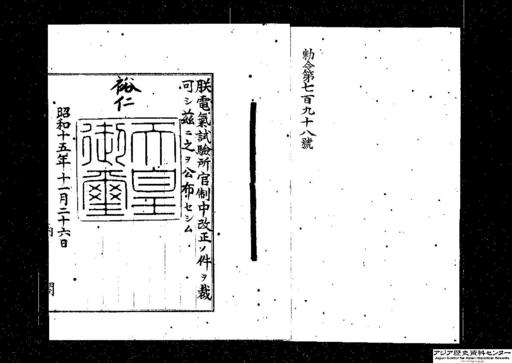 勅令第七百九十八號
朕電氣試驗所官制中改正ノ件ヲ裁
可シ茲ニ之ヲ公布セシム
裕仁
天皇
御璽
昭和十五年十一月二十六日
内閣
アジア歴史資料センター
Japan Center for Asian Historical Records